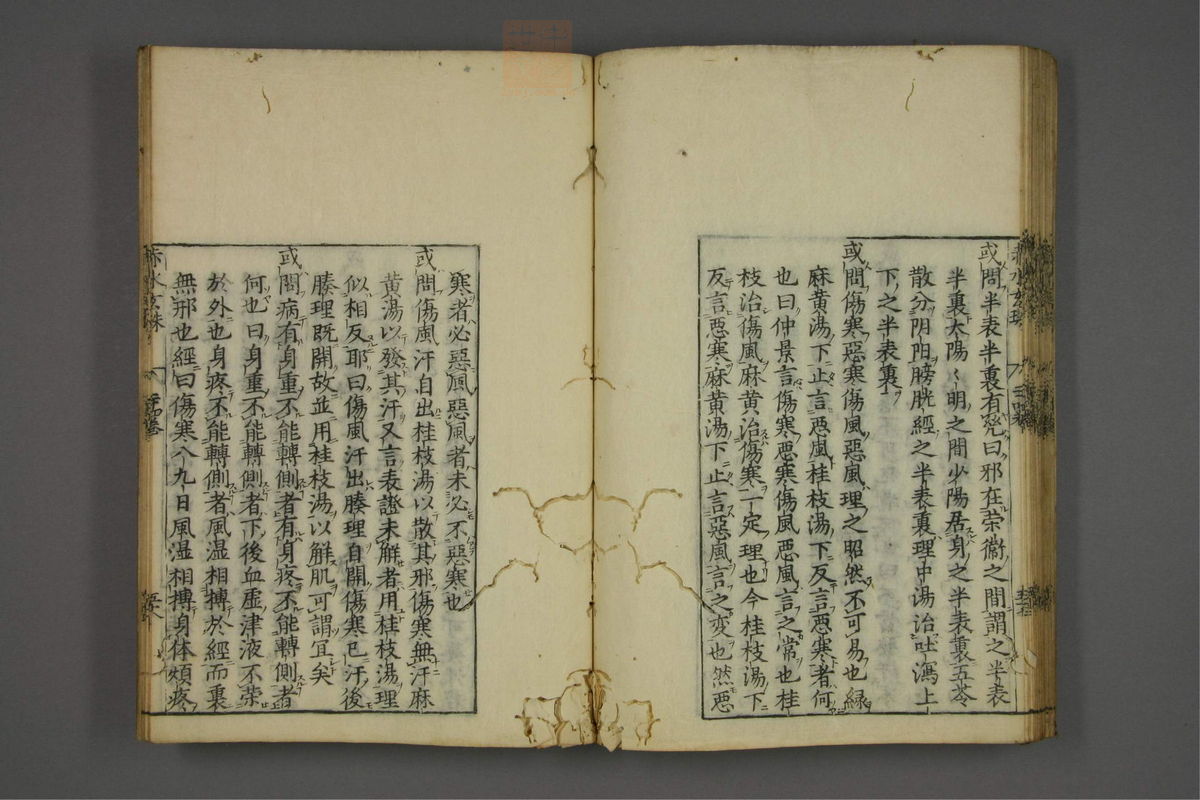 或問半表半裏有幾曰邪在荣衞之間謂之半表
半裏太陽〻明之間少陽居身之半表裏五苓
散分阴阳膀胱經之半表裏理中湯治吐瀉上
下之半表裏
或問傷寒惡寒傷風惡風理之昭然不可易也緑
麻黄湯下止言惡風桂枝湯下反言惡寒者何
也曰仲景言傷寒惡寒傷風惡風言之常也桂
枝治傷風麻黄治傷寒一定理也今桂枝湯下
反言惡寒麻黄湯下止言惡風言之変也然惡
寒者必惡風惡風者未必不惡寒也
或問傷風汗自出桂枝湯以散其邪傷寒無汗麻
黄湯以發其汗又言表證未解者用桂枝湯理
似相反耶曰傷風汗出腠理自開傷寒已汗後
腠理既開故並用桂枝湯以解肌可謂宜矣
或問病有身重不能轉側者有身疼不能轉側者
何也曰身重不能轉側者下後血虚津液不荣
於外也身疼不能轉側者風湿相搏於經而裏
無邪也經曰傷寒八九日風湿相搏身体煩疼
赤水玄珠